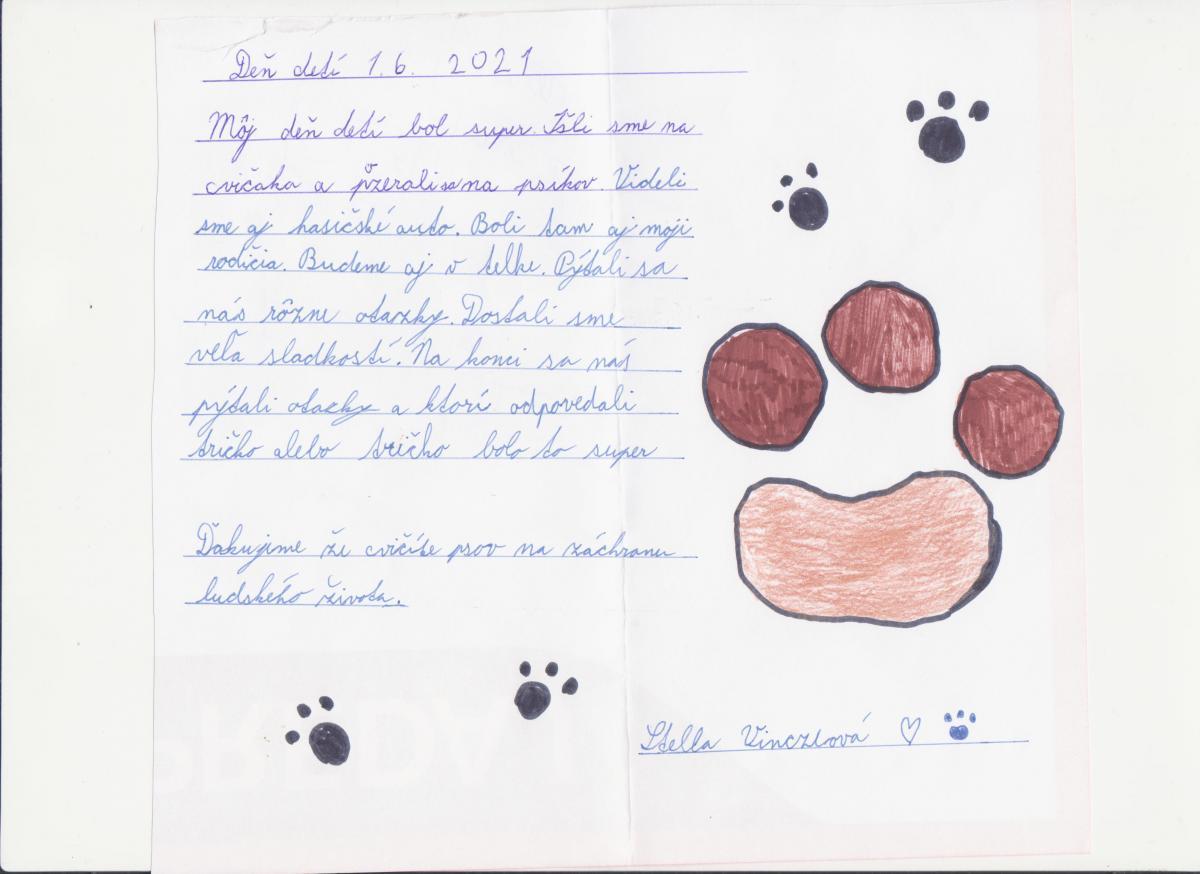 Deň detí 1.6. 2021
Môj deň detí bol super. Išli sme na
cvičáka a pžerali sa na psíkov. Videli
sme aj hasičské auto. Boli tam aj moji
rodičia. Budeme aj v telke. Pýtali sa
nás rôzne otazky. Dostali sme
veľa sladkostí. Na konci sa nás
pýtali otazky a ktorí odpovedali
tričko alebo tričko bolo to super
Ďakujime že cvičíte psov na záchranu
ludského života.
Stella Vinczeová